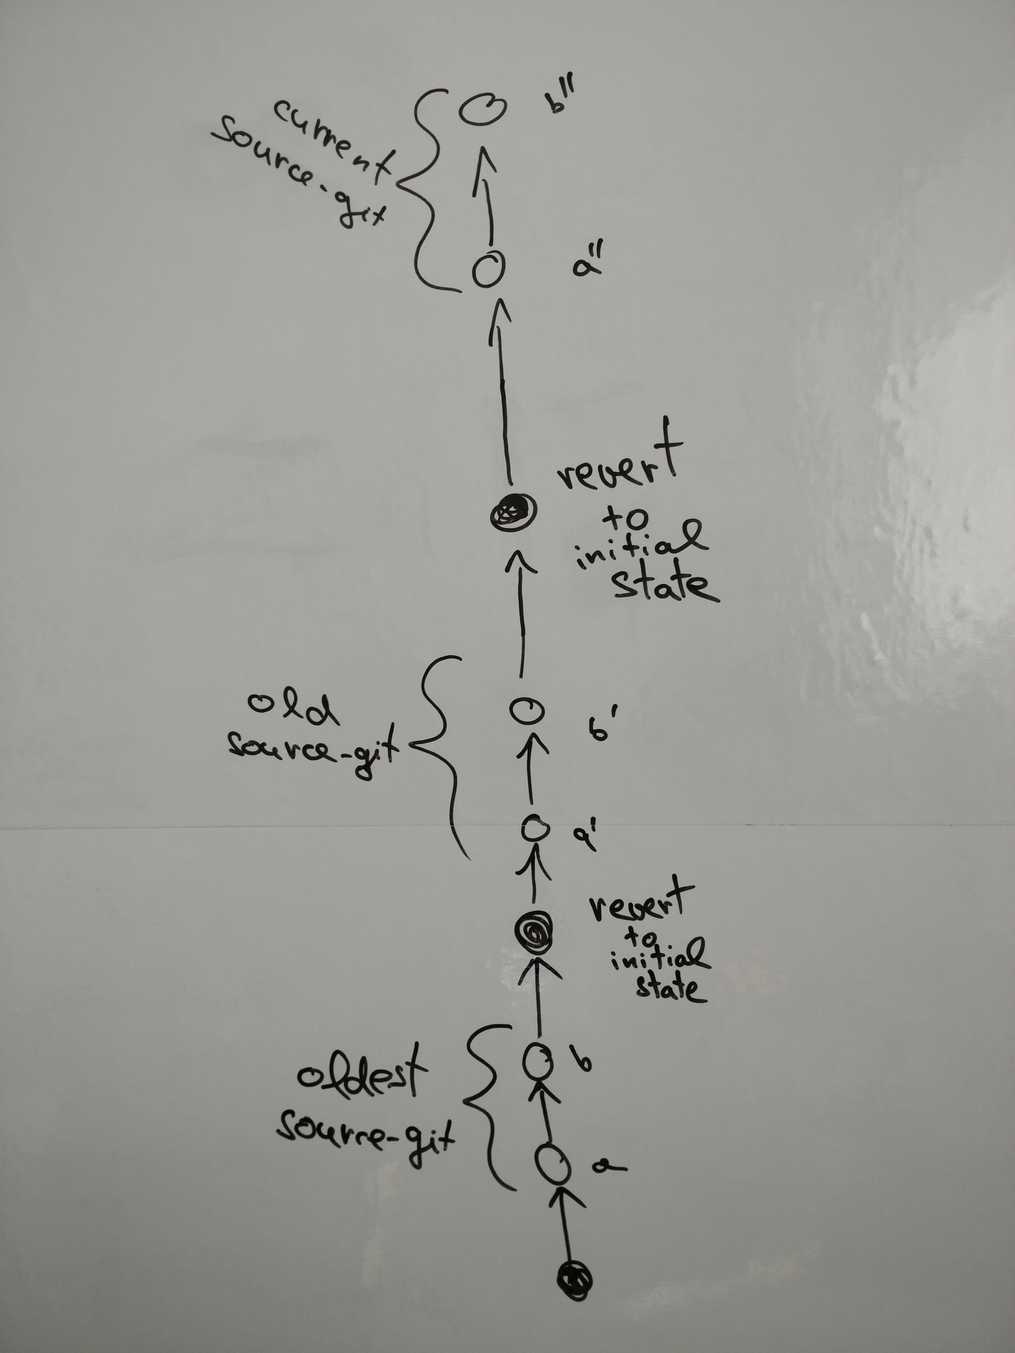 b"
current
source-git
a"
revert
to
initial
state
old
source-git
b'
a'
revert
to
initial
state
oldest
source-git
b
a